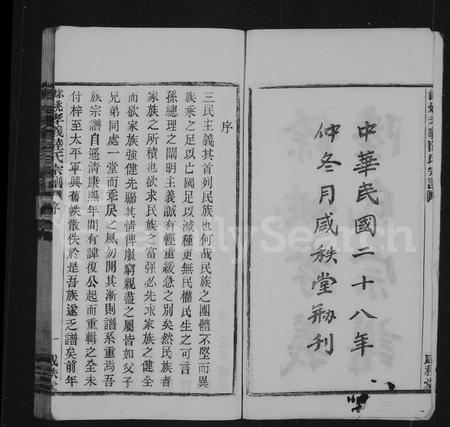 中華民國二十八年
仲冬月咸秩堂刊
序
三民主義其首列民族也何哉民族之團體不堅而異
族乘之足以亡國足以滅民更無民權民生之可言
孫總理之闡明主義誠有輕重緩急之別矣然民族者
家族之所積也欲求民族之富強必先求家族之健全
而欲家族強健先聯其情俾服窮親盡之屬皆如父子
兄弟同處一堂而乖戾之風勿開其漸則譜系重焉吾
族宗譜自遜清康熙年間有諱復公起而重輯之全未
付梓至太平軍興舊帙散佚於是吾族遂乏譜矣前年
餘姚孝義陸氏宗譜
序
一
咸秩堂